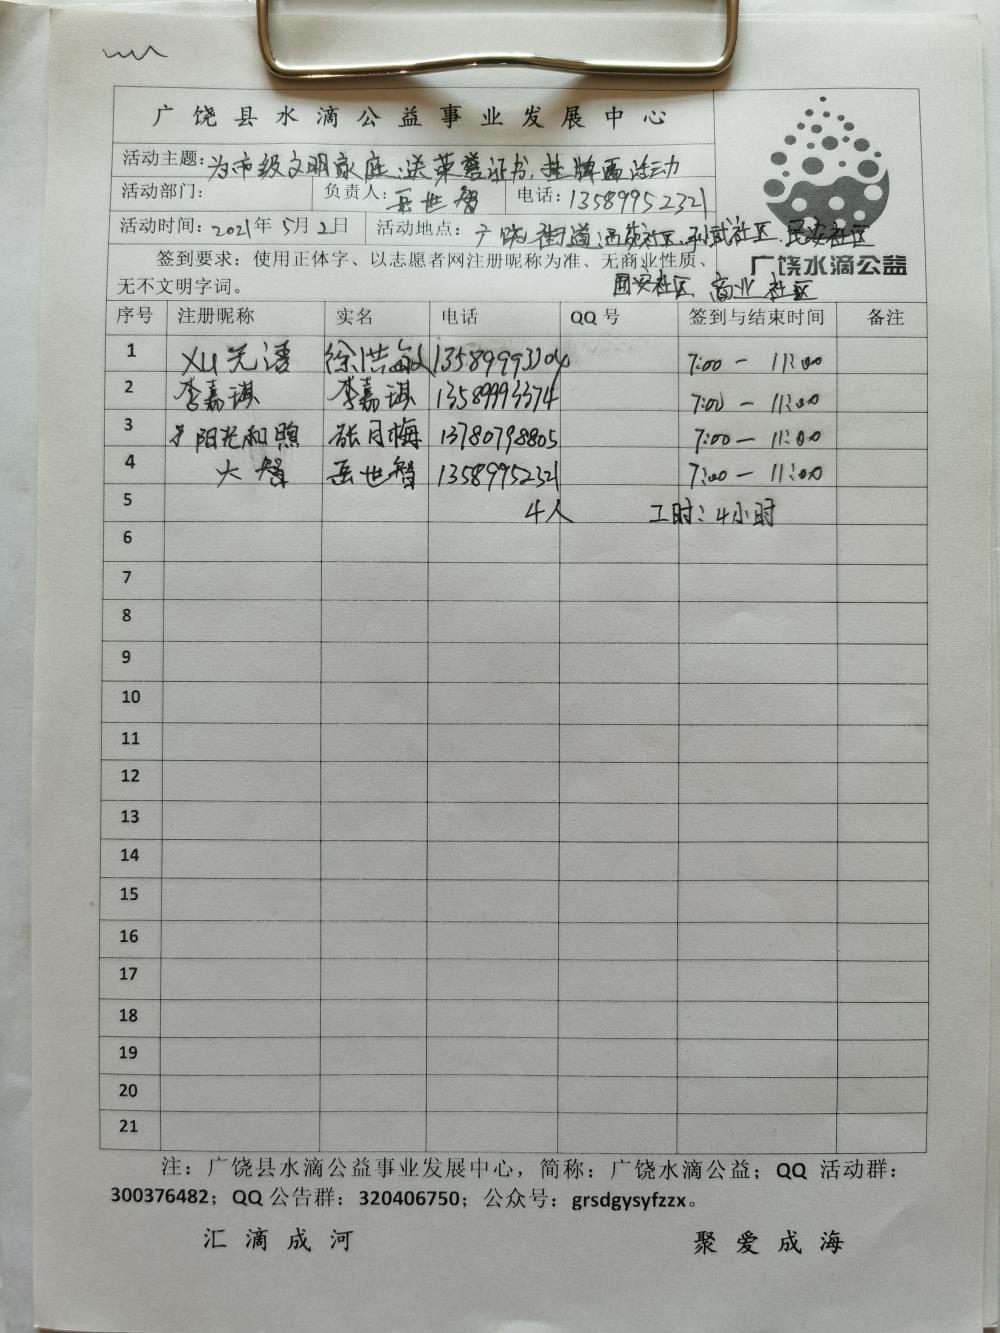 广饶县水滴公益事业发展中心
活动主题：为市级文明家庭、送荣誉证书，挂牌匾活动
活动部门： 负责人：岳世智 电话：13589952321
活动时间：2021年5月2日 活动地点：广饶街道 社区、孙武社区、民安社区
国安社区 商业社区
广饶水滴公益
签到要求：使用正体字、以志愿者网注册昵称为准、无商业性质、
无不文明字词。
序号 注册昵称 实名 电话 QQ号 签到与结束时间 备注
1 XU无语 徐洪敏 13589993304 7:00 — 11:00
2 李嘉琪 李嘉琪 13589993374 7:00 — 11:00
3 阳光和煦 张月梅 13780798805 7:00 — 11:00
4 大智 岳世智 13589952321 7:00 — 11:00
5 4人 工时：4小时
6
7
8
9
10
11
12
13
14
15
16
17
18
19
20
21
注：广饶县水滴公益事业发展中心，简称：广饶水滴公益；QQ 活动群：
300376482；QQ公告群：320406750；公众号：grsdgysyfzzx。
汇滴成河 聚爱成海